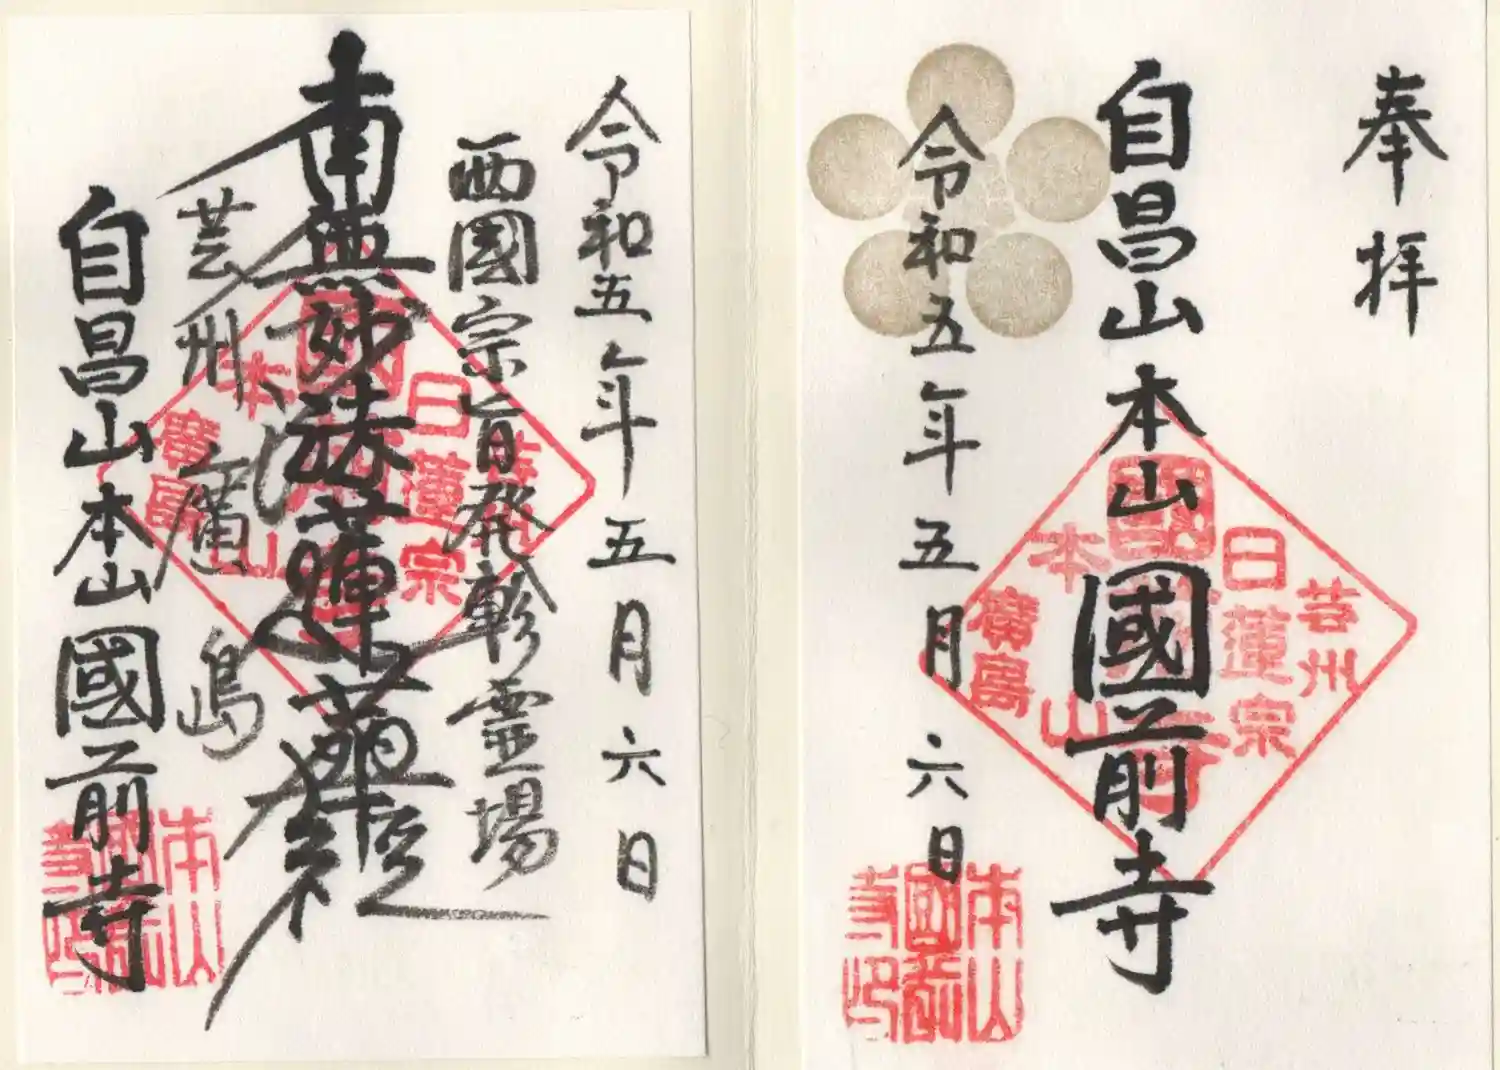 奉拝
自昌山本山國前寺
令和五年五月六日
芸州
日蓮宗
國前寺
本山
廣島
本山
國前
寺印
令和五年五月六日
西國宗旨発軫霊場
南無妙法蓮華経
芸州廣島
自昌山本山國前寺
芸州
日蓮宗
本山
廣島
本山
國前
寺印